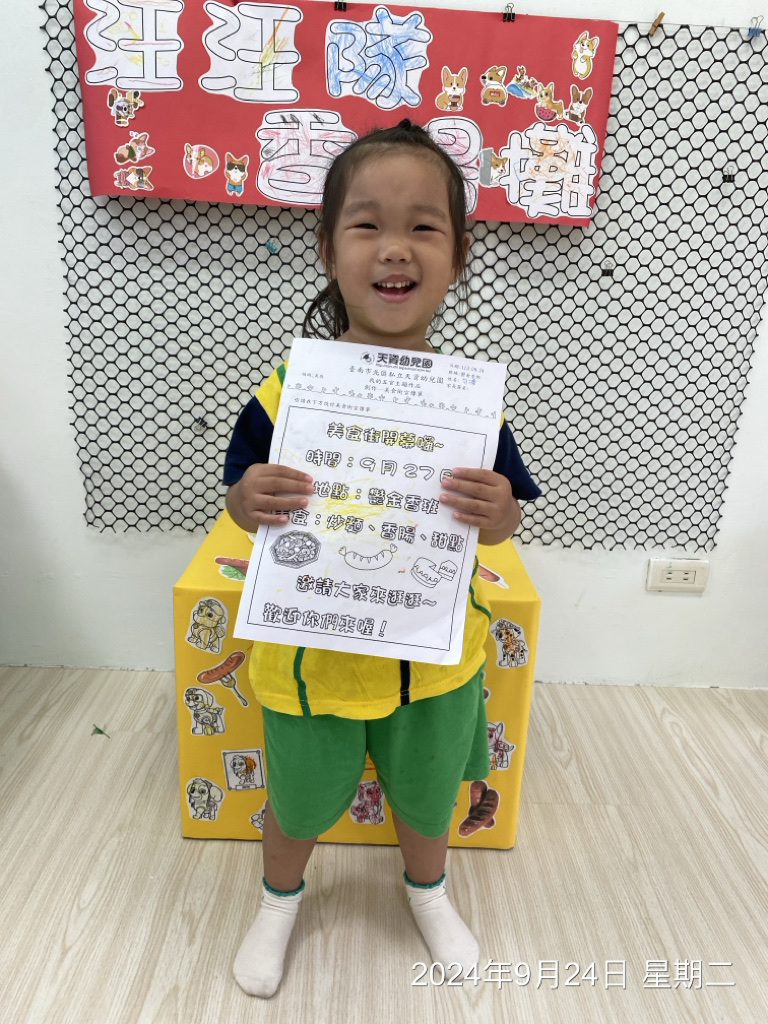 汪汪隊
香腸攤
天資幼兒園
臺南市北區私立天資幼兒園
我的五育互動作品
創作-美食街宣傳單
美食街開幕囉~
時間:9月27日
地點:鬱金香班
美食:炒麵、香陽、甜點
邀請大家來逛逛~
歡迎你們來喔!
2024年9月24日 星期二